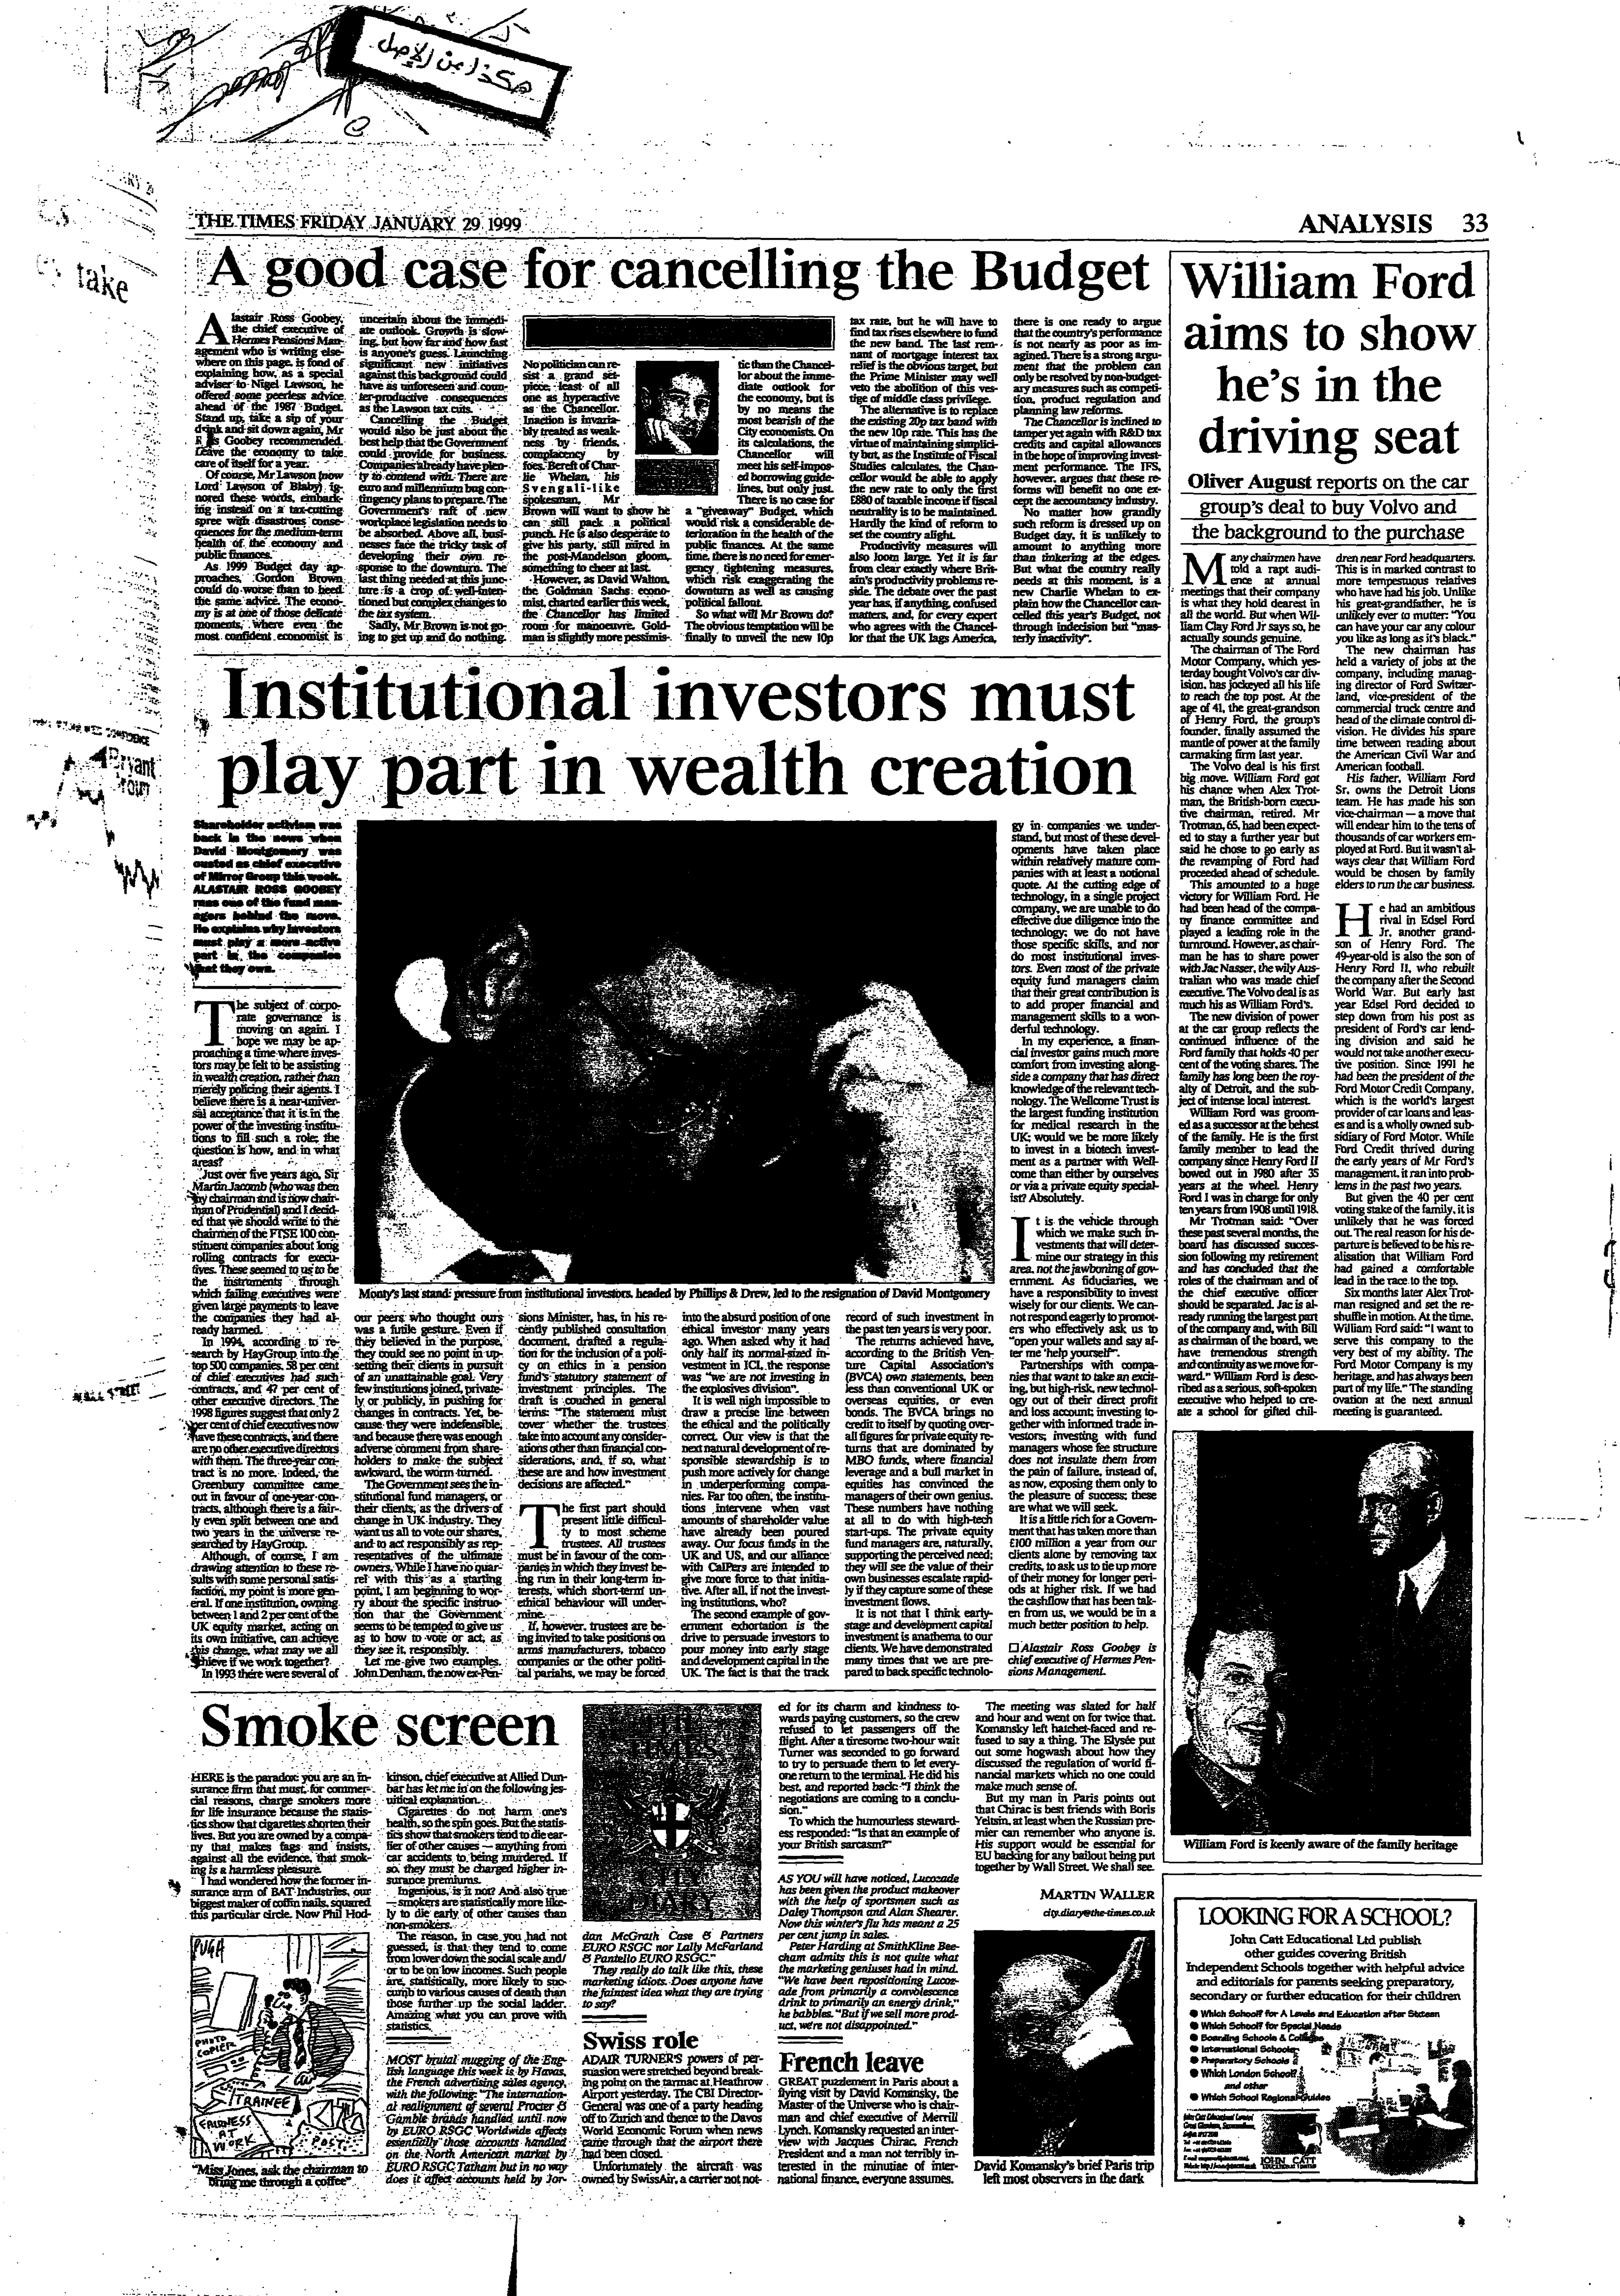 هكذا من الأصل
take
THE TIMES FRIDAY JANUARY 29 1999
ANALYSIS 33
A good case for cancelling the Budget
Alastair Ross Goobey,
the chief executive of
Hermes Pensions Man-
agement who is writing else-
where on this page, is fond of
explaining how, as a special
adviser to Nigel Lawson, he
offered some peerless advice
ahead of the 1987 Budget.
Stand up, take a sip of your
drink and sit down again, Mr
Goobey recommended.
Leave the economy to take
care of itself for a year.
Of course, Mr Lawson (now
Lord Lawson of Blaby) ig-
nored these words, embark-
ing instead on a tax-cutting
spree with disastrous conse-
quences for the medium-term
health of the economy and
public finances.
As 1999 Budget day ap-
proaches, Gordon Brown
could do worse than to heed
the same advice. The econo-
my is at one of those delicate
moments, where even the
most confident economist is
uncertain about the immedi-
ate outlook. Growth is slow-
ing, but how far and how fast
is anyone's guess. Launching
significant new initiatives
against this background could
have as unforeseen and coun-
ter-productive consequences
as the Lawson tax cuts.
Cancelling the Budget
would also be just about the
best help that the Government
could provide for business.
Companies already have plen-
ty to contend with. There are
euro and millennium bug con-
tingency plans to prepare. The
Government's raft of new
workplace legislation needs to
be absorbed. Above all, busi-
nesses face the tricky task of
developing their own re-
sponse to the downturn. The
last thing needed at this junc-
ture is a crop of well-inten-
tioned but complex changes to
the tax system.
Sadly, Mr Brown is not go-
ing to get up and do nothing.
No politician can re-
sist a grand set-
piece, least of all
one as hyperactive
as the Chancellor.
Inaction is invaria-
bly treated as weak-
ness by friends,
complacency by
foes. Bereft of Char-
lie Whelan, his
Svengali-like
spokesman, Mr
Brown will want to show he
can still pack a political
punch. He is also desperate to
give his party, still mired in
the post-Mandelson gloom,
something to cheer at last.
However, as David Walton,
the Goldman Sachs econo-
mist, charted earlier this week,
the Chancellor has limited
room for manoeuvre. Gold-
man is slightly more pessimis-
tic than the Chancel-
lor about the imme-
diate outlook for
the economy, but is
by no means the
most bearish of the
City economists. On
its calculations, the
Chancellor will
meet his self-impos-
ed borrowing guide-
lines, but only just.
There is no case for
a "giveaway" Budget, which
would risk a considerable de-
terioration in the health of the
public finances. At the same
time, there is no need for emer-
gency tightening measures,
which risk exaggerating the
downturn as well as causing
political fallout.
So what will Mr Brown do?
The obvious temptation will be
finally to unveil the new 10p
tax rate, but he will have to
find tax rises elsewhere to fund
the new band. The last rem-
nant of mortgage interest tax
relief is the obvious target, but
the Prime Minister may well
veto the abolition of this ves-
tige of middle class privilege.
The alternative is to replace
the existing 20p tax band with
the new 10p rate. This has the
virtue of maintaining simplici-
ty but, as the Institute of Fiscal
Studies calculates, the Chan-
cellor would be able to apply
the new rate to only the first
£880 of taxable income if fiscal
neutrality is to be maintained.
Hardly the kind of reform to
set the country alight.
Productivity measures will
also loom large. Yet it is far
from clear exactly where Brit-
ain's productivity problems re-
side. The debate over the past
year has, if anything, confused
matters, and, for every expert
who agrees with the Chancel-
lor that the UK lags America,
there is one ready to argue
that the country's performance
is not nearly as poor as im-
agined. There is a strong argu-
ment that the problem can
only be resolved by non-budget-
ary measures such as competi-
tion, product regulation and
planning law reforms.
The Chancellor is inclined to
tamper yet again with R&D tax
credits and capital allowances
in the hope of improving invest-
ment performance. The IFS,
however, argues that these re-
forms will benefit no one ex-
cept the accountancy industry.
No matter how grandly
such reform is dressed up on
Budget day, it is unlikely to
amount to anything more
than tinkering at the edges.
But what the country really
needs at this moment, is a
new Charlie Whelan to ex-
plain how the Chancellor can-
celled this year's Budget, not
through indecision but "mas-
terly inactivity".
Institutional investors must
play part in wealth creation
Shareholder activism was
back in the news when
David Montgomery was
ousted as chief executive
of Mirror Group this week.
ALASTAIR ROSS GOOBEY
runs one of the fund man-
agers behind the move.
He explains why investors
must play a more active
part in the companies
that they own.
The subject of corpo-
rate governance is
moving on again. I
hope we may be ap-
proaching a time where inves-
tors may be felt to be assisting
in wealth creation, rather than
merely policing their agents. I
believe there is a near-univer-
sal acceptance that it is in the
power of the investing institu-
tions to fill such a role; the
question is how, and in what
areas?
Just over five years ago, Sir
Martin Jacomb (who was then
my chairman and is now chair-
man of Prudential) and I decid-
ed that we should write to the
chairmen of the FTSE 100 con-
stituent companies about long
rolling contracts for execu-
tives. These seemed to us to be
the instruments through
which failing executives were
given large payments to leave
the companies they had al-
ready harmed.
In 1994, according to re-
search by HayGroup into the
top 500 companies, 58 per cent
of chief executives had such
contracts, and 47 per cent of
other executive directors. The
1998 figures suggest that only 2
per cent of chief executives now
have these contracts, and there
are no other executive directors
with them. The three-year con-
tract is no more. Indeed, the
Greenbury committee came
out in favour of one-year con-
tracts, although there is a fair-
ly even split between one and
two years in the universe re-
searched by HayGroup.
Although, of course, I am
drawing attention to these re-
sults with some personal satis-
faction, my point is more gen-
eral. If one institution, owning
between 1 and 2 per cent of the
UK equity market, acting on
its own initiative, can achieve
this change, what may we all
achieve if we work together?
In 1993 there were several of
Monty's last stand: pressure from institutional investors, headed by Phillips & Drew, led to the resignation of David Montgomery
our peers who thought ours
was a futile gesture. Even if
they believed in the purpose,
they could see no point in up-
setting their clients in pursuit
of an unattainable goal. Very
few institutions joined, private-
ly or publicly, in pushing for
changes in contracts. Yet, be-
cause they were indefensible,
and because there was enough
adverse comment from share-
holders to make the subject
awkward, the worm turned.
The Government sees the in-
stitutional fund managers, or
their clients, as the drivers of
change in UK industry. They
want us all to vote our shares,
and to act responsibly as rep-
resentatives of the ultimate
owners. While I have no quar-
rel with this as a starting
point, I am beginning to wor-
ry about the specific instruc-
tion that the Government
seems to be tempted to give us
as to how to vote or act, as
they see it, responsibly.
Let me give two examples.
John Denham, the now ex-Pen-
sions Minister, has, in his re-
cently published consultation
document, drafted a regula-
tion for the inclusion of a poli-
cy on ethics in a pension
fund's statutory statement of
investment principles. The
draft is couched in general
terms: "The statement must
cover whether the trustees
take into account any consider-
ations other than financial con-
siderations, and, if so, what
these are and how investment
decisions are affected."
The first part should
present little difficul-
ty to most scheme
trustees. All trustees
must be in favour of the com-
panies in which they invest be-
ing run in their long-term in-
terests, which short-term un-
ethical behaviour will under-
mine.
If, however, trustees are be-
ing invited to take positions on
arms manufacturers, tobacco
companies or the other politi-
cal pariahs, we may be forced
into the absurd position of the
ethical investor many years
ago. When asked why it had
only half its normal-sized in-
vestment in ICI, the response
was "we are not investing in
the explosives division".
It is well nigh impossible to
draw a precise line between
the ethical and the politically
correct. Our view is that the
next natural development of re-
sponsible stewardship is to
push more actively for change
in underperforming compa-
nies. Far too often, the institu-
tions intervene when vast
amounts of shareholder value
have already been poured
away. Our focus funds in the
UK and US, and our alliance
with CalPers are intended to
give more force to that initia-
tive. After all, if not the invest-
ing institutions, who?
The second example of gov-
ernment exhortation is the
drive to persuade investors to
pour money into early stage
and development capital in the
UK. The fact is that the track
record of such investment in
the past ten years is very poor.
The returns achieved have,
according to the British Ven-
ture Capital Association's
(BVCA) own statements, been
less than conventional UK or
overseas equities, or even
bonds. The BVCA brings no
credit to itself by quoting over-
all figures for private equity re-
turns that are dominated by
MBO funds, where financial
leverage and a bull market in
equities has convinced the
managers of their own genius.
These numbers have nothing
at all to do with high-tech
start-ups. The private equity
fund managers are, naturally,
supporting the perceived need;
they will see the value of their
own businesses escalate rapid-
ly if they capture some of these
investment flows.
It is not that I think early-
stage and development capital
investment is anathema to our
clients. We have demonstrated
many times that we are pre-
pared to back specific technolo-
gy in companies we under-
stand, but most of these devel-
opments have taken place
within relatively mature com-
panies with at least a notional
quote. At the cutting edge of
technology, in a single project
company, we are unable to do
effective due diligence into the
technology; we do not have
those specific skills, and nor
do most institutional inves-
tors. Even most of the private
equity fund managers claim
that their great contribution is
to add proper financial and
management skills to a won-
derful technology.
In my experience, a finan-
cial investor gains much more
comfort from investing along-
side a company that has direct
knowledge of the relevant tech-
nology. The Wellcome Trust is
the largest funding institution
for medical research in the
UK; would we be more likely
to invest in a biotech invest-
ment as a partner with Well-
come than either by ourselves
or via a private equity special-
ist? Absolutely.
It is the vehicle through
which we make such in-
vestments that will deter-
mine our strategy in this
area, not the jawboning of gov-
ernment. As fiduciaries, we
have a responsibility to invest
wisely for our clients. We can-
not respond eagerly to promot-
ers who effectively ask us to
"open your wallets and say af-
ter me 'help yourself'".
Partnerships with compa-
nies that want to take an excit-
ing, but high-risk, new technol-
ogy out of their direct profit
and loss account; investing to-
gether with informed trade in-
vestors; investing with fund
managers whose fee structure
does not insulate them from
the pain of failure, instead of,
as now, exposing them only to
the pleasure of success; these
are what we will seek.
It is a little rich for a Govern-
ment that has taken more than
£100 million a year from our
clients alone by removing tax
credits, to ask us to tie up more
of their money for longer peri-
ods at higher risk. If we had
the cashflow that has been tak-
en from us, we would be in a
much better position to help.
□ Alastair Ross Goobey is
chief executive of Hermes Pen-
sions Management.
William Ford
aims to show
he's in the
driving seat
Oliver August reports on the car
group's deal to buy Volvo and
the background to the purchase
Many chairmen have
told a rapt audi-
ence at annual
meetings that their company
is what they hold dearest in
all the world. But when Wil-
liam Clay Ford Jr says so, he
actually sounds genuine.
The chairman of The Ford
Motor Company, which yes-
terday bought Volvo's car div-
ision, has jockeyed all his life
to reach the top post. At the
age of 41, the great-grandson
of Henry Ford, the group's
founder, finally assumed the
mantle of power at the family
carmaking firm last year.
The Volvo deal is his first
big move. William Ford got
his chance when Alex Trot-
man, the British-born execu-
tive chairman, retired. Mr
Trotman, 65, had been expect-
ed to stay a further year but
said he chose to go early as
the revamping of Ford had
proceeded ahead of schedule.
This amounted to a huge
victory for William Ford. He
had been head of the compa-
ny finance committee and
played a leading role in the
turnround. However, as chair-
man he has to share power
with Jac Nasser, the wily Aus-
tralian who was made chief
executive. The Volvo deal is as
much his as William Ford's.
The new division of power
at the car group reflects the
continued influence of the
Ford family that holds 40 per
cent of the voting shares. The
family has long been the roy-
alty of Detroit, and the sub-
ject of intense local interest.
William Ford was groom-
ed as a successor at the behest
of the family. He is the first
family member to lead the
company since Henry Ford II
bowed out in 1980 after 35
years at the wheel. Henry
Ford I was in charge for only
ten years from 1908 until 1918.
Mr Trotman said: "Over
these past several months, the
board has discussed succes-
sion following my retirement
and has concluded that the
roles of the chairman and of
the chief executive officer
should be separated. Jac is al-
ready running the largest part
of the company and, with Bill
as chairman of the board, we
have tremendous strength
and continuity as we move for-
ward." William Ford is desc-
ribed as a serious, soft-spoken
executive who helped to cre-
ate a school for gifted chil-
dren near Ford headquarters.
This is in marked contrast to
more tempestuous relatives
who have had his job. Unlike
his great-grandfather, he is
unlikely ever to mutter: "You
can have your car any colour
you like as long as it's black."
The new chairman has
held a variety of jobs at the
company, including manag-
ing director of Ford Switzer-
land, vice-president of the
commercial truck centre and
head of the climate control di-
vision. He divides his spare
time between reading about
the American Civil War and
American football.
His father, William Ford
Sr, owns the Detroit Lions
team. He has made his son
vice-chairman — a move that
will endear him to the tens of
thousands of car workers em-
ployed at Ford. But it wasn't al-
ways clear that William Ford
would be chosen by family
elders to run the car business.
He had an ambitious
rival in Edsel Ford
Jr, another grand-
son of Henry Ford. The
49-year-old is also the son of
Henry Ford II, who rebuilt
the company after the Second
World War. But early last
year Edsel Ford decided to
step down from his post as
president of Ford's car lend-
ing division and said he
would not take another execu-
tive position. Since 1991 he
had been the president of the
Ford Motor Credit Company,
which is the world's largest
provider of car loans and leas-
es and is a wholly owned sub-
sidiary of Ford Motor. While
Ford Credit thrived during
the early years of Mr Ford's
management, it ran into prob-
lems in the past two years.
But given the 40 per cent
voting stake of the family, it is
unlikely that he was forced
out. The real reason for his de-
parture is believed to be his re-
alisation that William Ford
had gained a comfortable
lead in the race to the top.
Six months later Alex Trot-
man resigned and set the re-
shuffle in motion. At the time,
William Ford said: "I want to
serve this company to the
very best of my ability. The
Ford Motor Company is my
heritage, and has always been
part of my life." The standing
ovation at the next annual
meeting is guaranteed.
William Ford is keenly aware of the family heritage
Smoke screen
HERE is the paradox: you are an in-
surance firm that must, for commer-
cial reasons, charge smokers more
for life insurance because the statis-
tics show that cigarettes shorten their
lives. But you are owned by a compa-
ny that makes fags and insists,
against all the evidence, that smok-
ing is a harmless pleasure.
I had wondered how the former in-
surance arm of BAT Industries, our
biggest maker of coffin nails, squared
this particular circle. Now Phil Hod-
kinson, chief executive at Allied Dun-
bar has let me in on the following jes-
uitical explanation.
Cigarettes do not harm one's
health, so the spin goes. But the statis-
tics show that smokers tend to die ear-
lier of other causes — anything from
car accidents to being murdered. If
so, they must be charged higher in-
surance premiums.
Ingenious, is it not? And also true
— smokers are statistically more like-
ly to die early of other causes than
non-smokers.
The reason, in case you had not
guessed, is that they tend to come
from lower down the social scale and/
or to be on low incomes. Such people
are, statistically, more likely to suc-
cumb to various causes of death than
those further up the social ladder.
Amazing what you can prove with
statistics.
PUGH
PHOTO
COPIER
TRAINEE
FAIRNESS
AT
WORK
POST
"Miss Jones, ask the chairman to
bring me through a coffee"
MOST brutal mugging of the Eng-
lish language this week is by Havas,
the French advertising sales agency,
with the following: "The internation-
al realignment of several Procter &
Gamble brands handled until now
by EURO RSGC Worldwide affects
essentially those accounts handled
on the North American market by
EURO RSGC Tatham but in no way
does it affect accounts held by Jor-
THE
TIMES
CITY
DIARY
dan McGrath Case & Partners
EURO RSGC nor Lally McFarland
& Pantello EURO RSGC."
They really do talk like this, these
marketing idiots. Does anyone have
the faintest idea what they are trying
to say?
Swiss role
ADAIR TURNER'S powers of per-
suasion were stretched beyond break-
ing point on the tarmac at Heathrow
Airport yesterday. The CBI Director-
General was one of a party heading
off to Zurich and thence to the Davos
World Economic Forum when news
came through that the airport there
had been closed.
Unfortunately the aircraft was
owned by SwissAir, a carrier not not-
ed for its charm and kindness to-
wards paying customers, so the crew
refused to let passengers off the
flight. After a tiresome two-hour wait
Turner was seconded to go forward
to try to persuade them to let every-
one return to the terminal. He did his
best, and reported back: "I think the
negotiations are coming to a conclu-
sion."
To which the humourless steward-
ess responded: "Is that an example of
your British sarcasm?"
AS YOU will have noticed, Lucozade
has been given the product makeover
with the help of sportsmen such as
Daley Thompson and Alan Shearer.
Now this winter's flu has meant a 25
per cent jump in sales.
Peter Harding at SmithKline Bee-
cham admits this is not quite what
the marketing geniuses had in mind.
"We have been repositioning Lucoz-
ade from primarily a convalescence
drink to primarily an energy drink,"
he babbles. "But if we sell more prod-
uct, we're not disappointed."
French leave
GREAT puzzlement in Paris about a
flying visit by David Komansky, the
Master of the Universe who is chair-
man and chief executive of Merrill
Lynch. Komansky requested an inter-
view with Jacques Chirac, French
President and a man not terribly in-
terested in the minutiae of inter-
national finance, everyone assumes.
The meeting was slated for half
and hour and went on for twice that.
Komansky left hatchet-faced and re-
fused to say a thing. The Elysée put
out some hogwash about how they
discussed the regulation of world fi-
nancial markets which no one could
make much sense of.
But my man in Paris points out
that Chirac is best friends with Boris
Yeltsin, at least when the Russian pre-
mier can remember who anyone is.
His support would be essential for
EU backing for any bailout being put
together by Wall Street. We shall see.
MARTIN WALLER
city.diary@the-times.co.uk
David Komansky's brief Paris trip
left most observers in the dark
LOOKING FOR A SCHOOL?
John Catt Educational Ltd publish
other guides covering British
Independent Schools together with helpful advice
and editorials for parents seeking preparatory,
secondary or further education for their children
● Which School? for A Levels and Education after Sixteen
● Which School? for Special Needs
● Boarding Schools & Colleges
● International Schools
● Preparatory Schools
● Which London School?
and other
● Which School Regional Guides
JOHN CATT